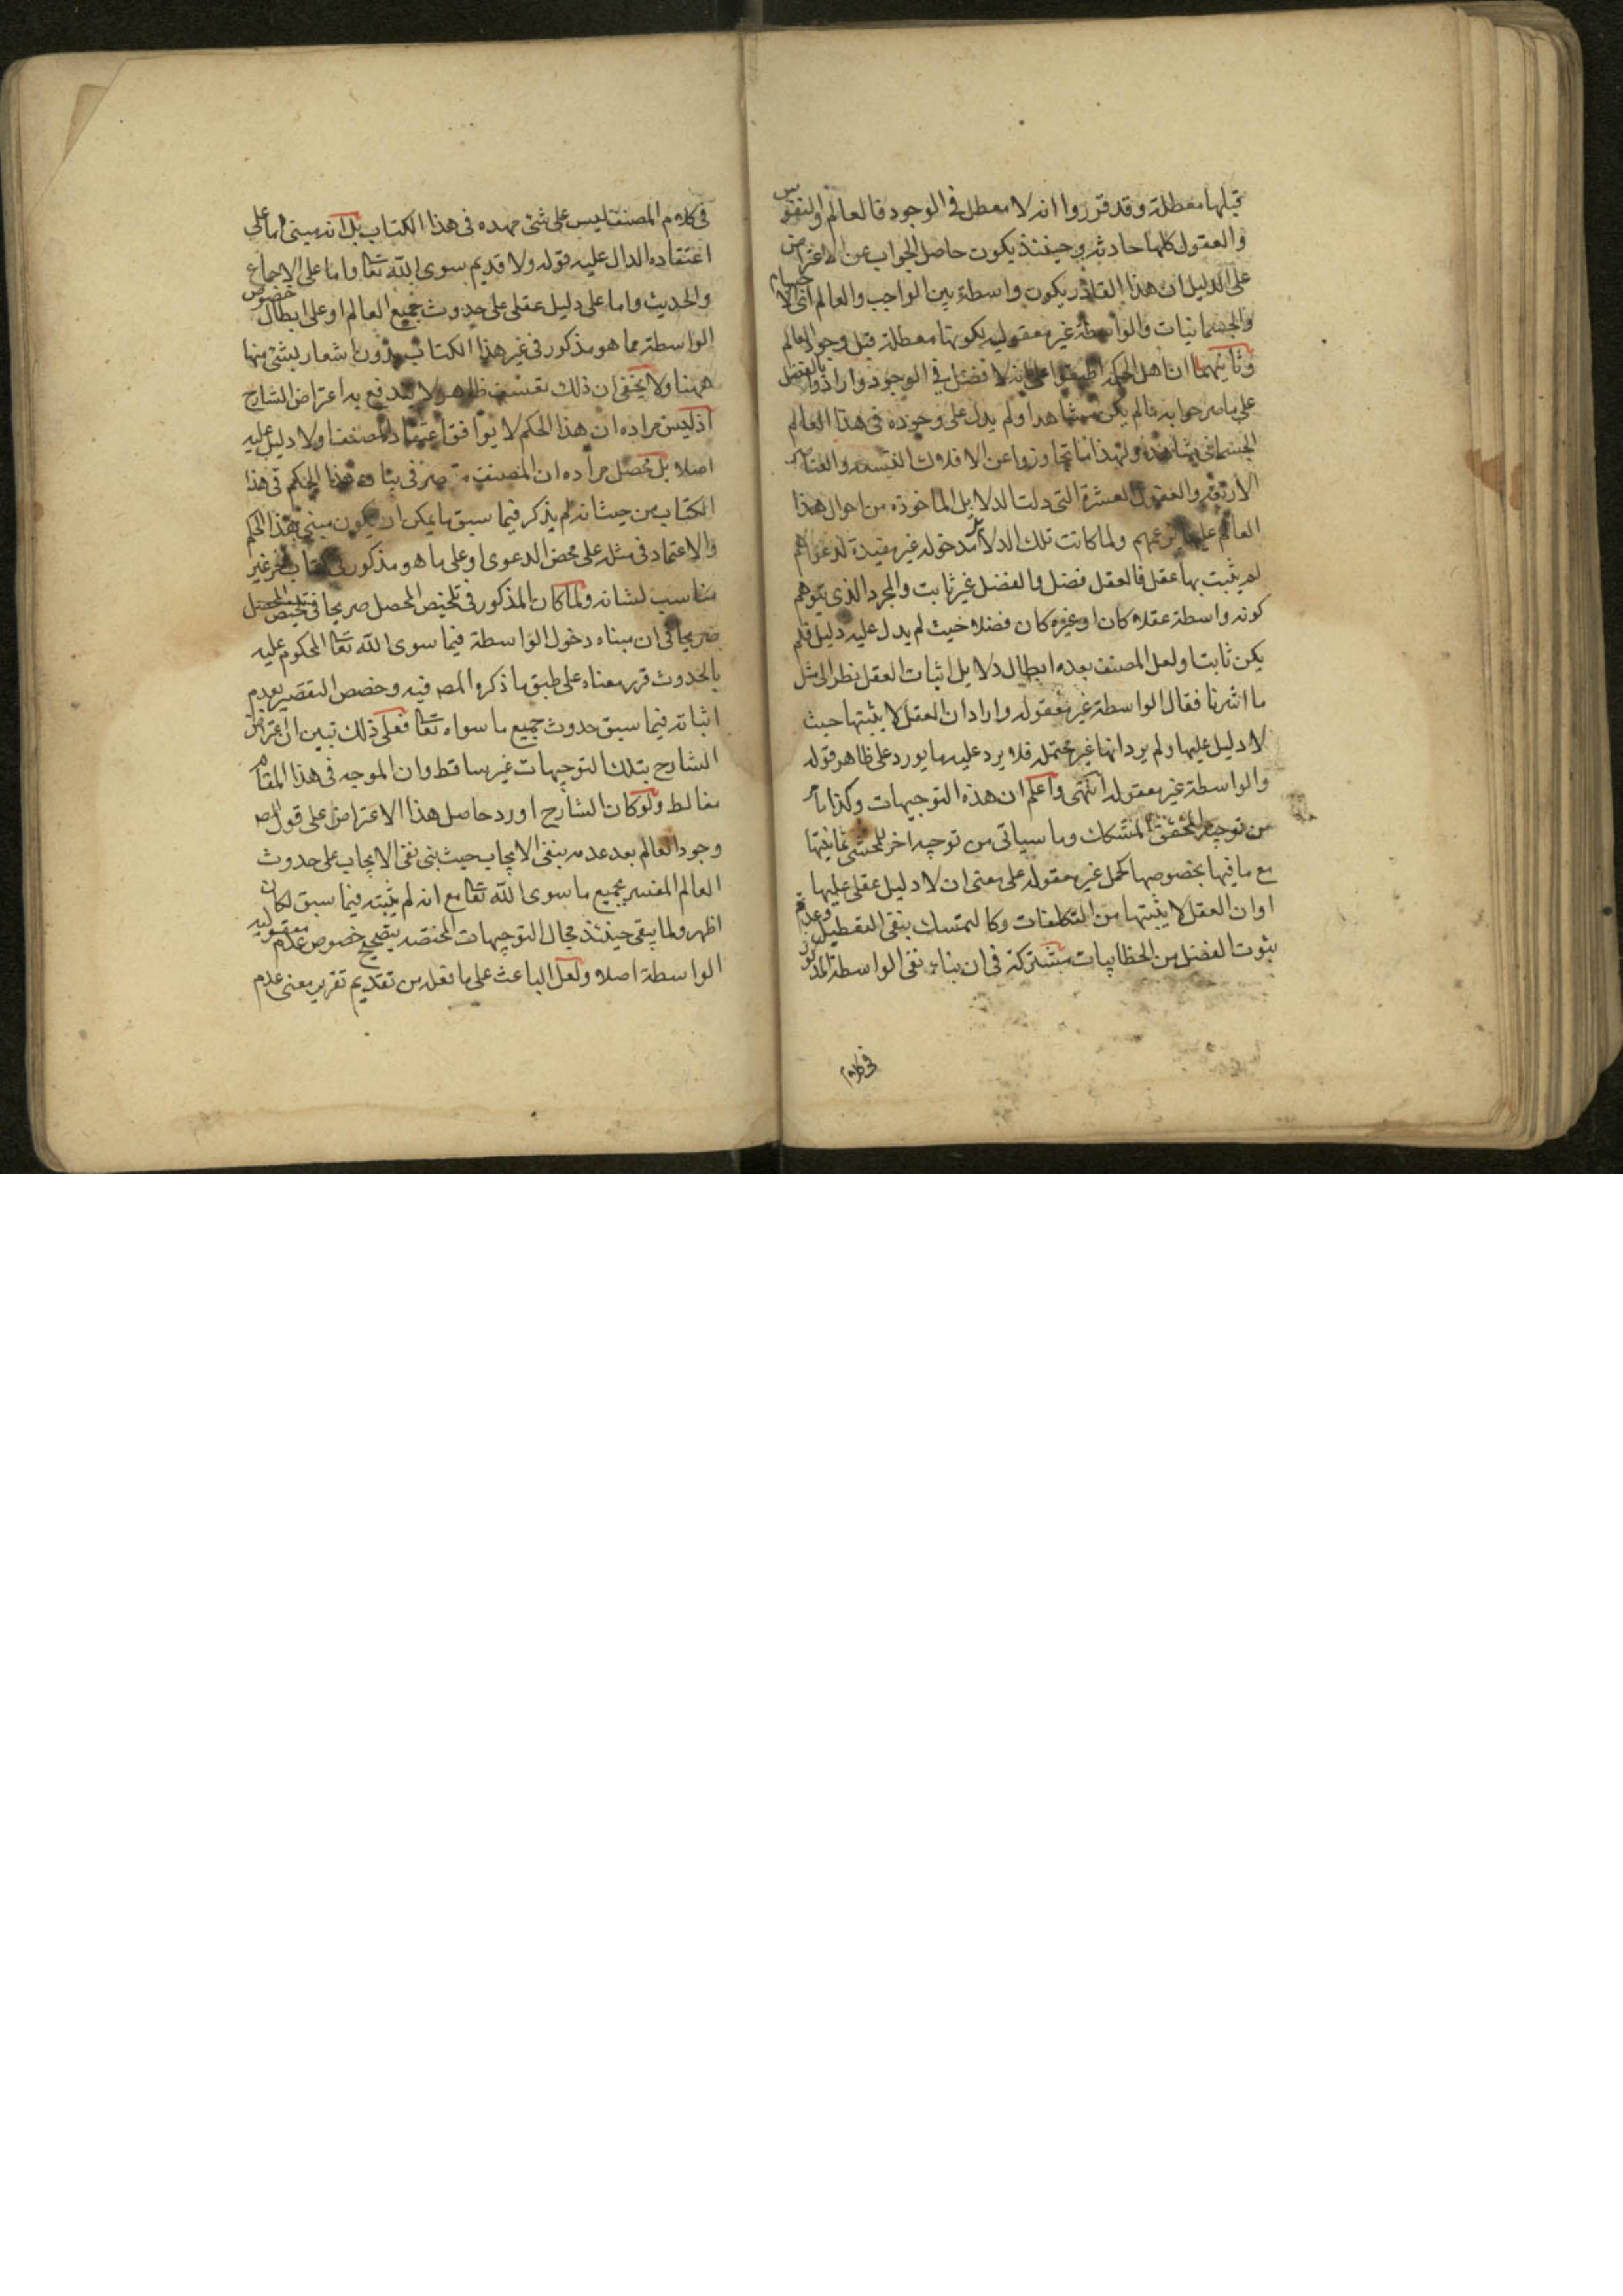 قبلها معطلة وقد قرروا انه لا معطل فى الوجود فالعالم والنفوس
والعقول كلها حادثه وحينئذ يكون حاصل الجواب عن الاعتراض
على الدليل ان هذا القادر يكون واسطة بين الواجب والعالم اى الاجسام
والجسمانيات والواسطة غير معقوله لكونها معطلة قبل وجود العالم
وثانيهما ان اهل الحكمة اطبقوا على انه لا فضل فى الوجود وارادوا بالفضل
على ما صرحوا به مالم يكن مشاهدا ولم يدل على وجوده فى هذا العالم
الجسمانى مشاهد ولهذا ما تجاوزوا عن الافلاك التسعه والعناصر
الاربعة والعقول العشرة التى دلت الدلايل الماخوذه من احوال هذا
العالم عليها بزعمهم ولما كانت تلك الدلايل مدخوله غير مفيدة لدعواهم
لم يثبت بها عقل فالعقل فضل والفضل غير ثابت والمجرد الذى يتوهم
كونه واسطة عقلا كان او غيره كان فضلا حيث لم يدل عليه دليل فلم
يكن ثابتا ولعل المصنف بعده ابطال دلايل اثبات العقل نظر الى مثل
ما اشرنا فقال الواسطة غير معقوله واراد ان العقل لا يثبتها حيث
لا دليل عليها ولم يرد انها غير محتمله فلا يرد عليه ما يورد على ظاهر قوله
والواسطة غير معقوله انتهى واعلم ان هذه التوجيهات وكذا ما مر
من توجيه المحقق المشكك وما سياتى من توجيه اخر للمحشى ثمانيتها
مع ما فيها بخصوصها كحمل غير معقوله على معنى ان لا دليل عقلى عليها
او ان العقل لا يثبتها من التكلفات وكالتمسك بنفى التعطيل وعدم
ثبوت الفضل من الخطابيات مشتركة فى ان بناء نفى الواسطة المذكور
فى كلام
فى كلام المصنف ليس على شئ مهده فى هذا الكتاب بل انه مبنى اما على
اعتقاده الدال عليه قوله ولا قديم سوى الله تعا واما على الاجماع
والحديث واما على دليل عقلى على حدوث جميع العالم او على ابطال خصوص
الواسطة مما هو مذكور فى غير هذا الكتاب بدون اشعار بشئ منها
ههنا ولا يخفى ان ذلك تعسف ظاهر ولا يندفع به اعتراض الشارح
اذ ليس مراده ان هذا الحكم لا يوافق اعتقاد المصنف او لا دليل عليه
اصلا بل محصل مراده ان المصنف قصر فى بيان هذا الحكم فى هذا
الكتاب من حيث انه لم يذكر فيما سبق ما يمكن ان يكون مبنى هذا الحكم
والاعتماد فى مثله على محض الدعوى او على ما هو مذكور فى كتاب اخر غير
مناسب لشانه ولما كان المذكور فى تلخيص المحصل صريحا فى تلخيص المحصل
صريحا فى ان مبناه دخول الواسطة فيما سوى الله تعا المحكوم عليه
بالحدوث قرر معناه على طبق ما ذكره المص فيه وخصص التقصير بعدم
اثباته فيما سبق حدوث جميع ما سواه تعا فعلى ذلك تبين ان اعتراض
الشارح بتلك التوجيهات غير ساقط وان الموجه فى هذا المقام
مغالط ولو كان الشارح اورد حاصل هذا الاعتراض على قول المص
وجود العالم بعد عدمه ينفى الايجاب حيث بنى نفى الايجاب على حدوث
العالم المفسر بجميع ما سوى الله تعا مع انه لم يثبته فيما سبق لكان
اظهر ولما يبقى حينئذ مجال التوجيهات المختصه بتصحيح خصوص عدم معقوليه
الواسطة اصلا ولعل الباعث على ما نقله من تقديم تقرير معنى عدم